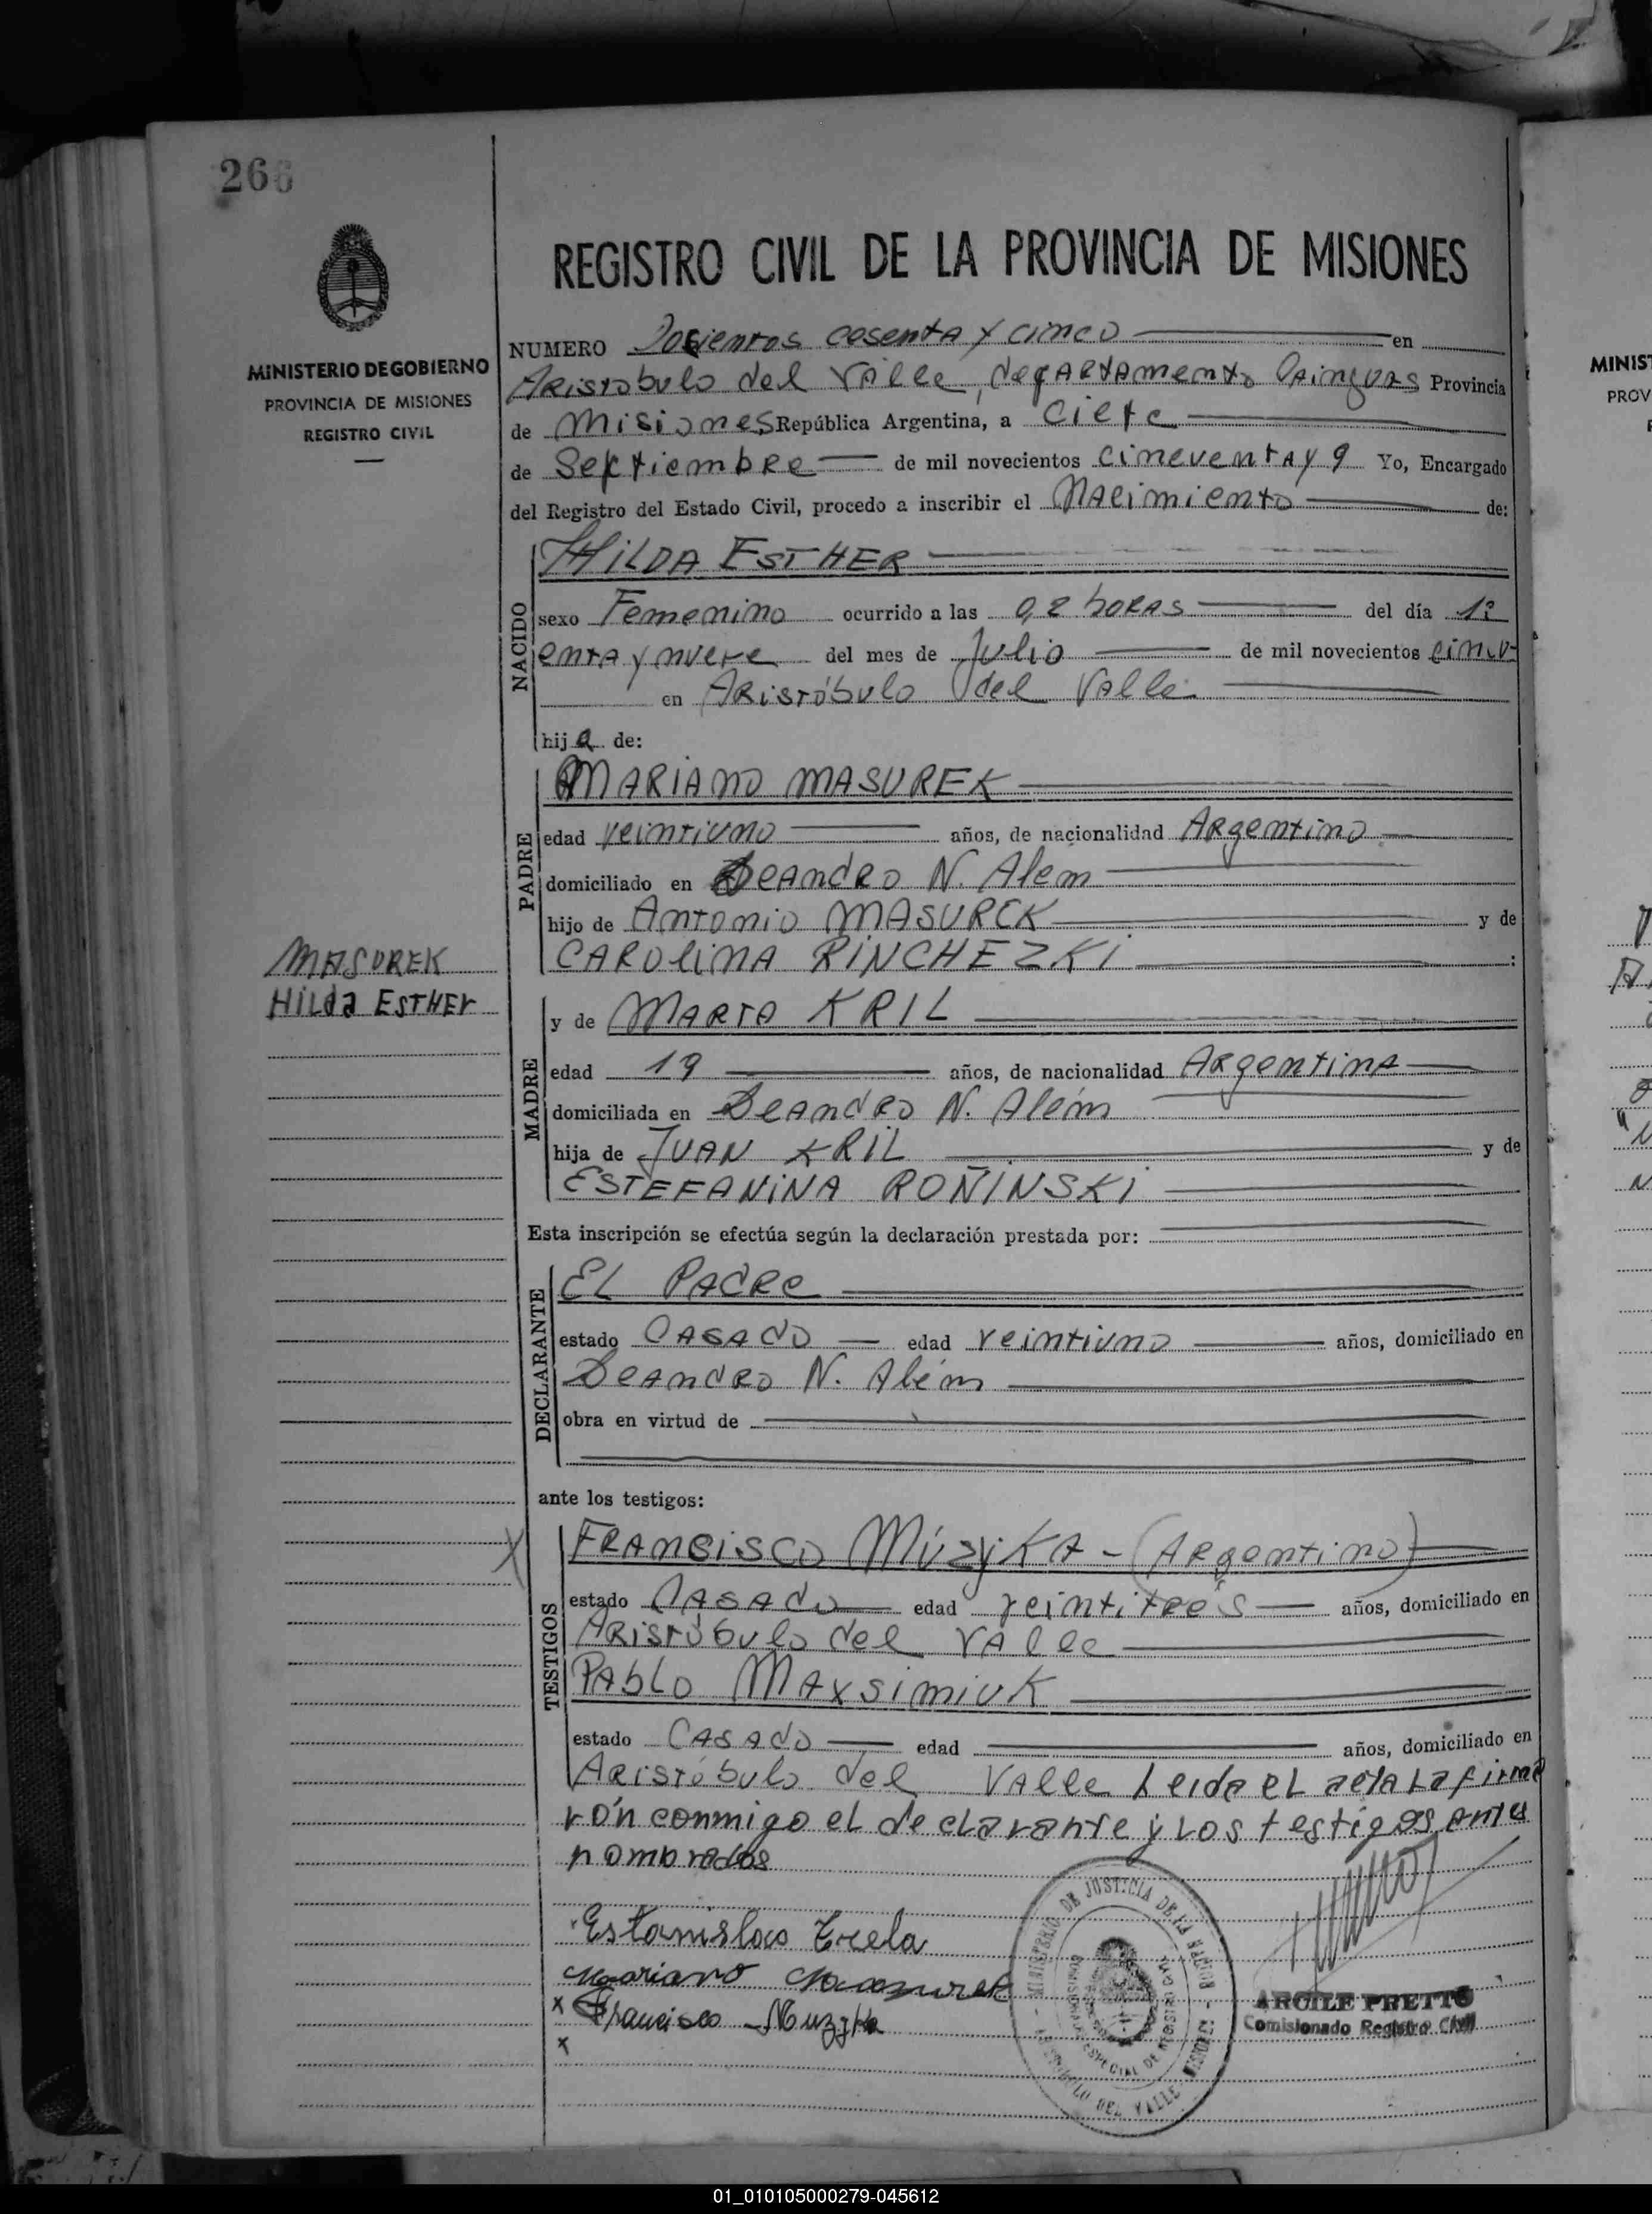 266
MINISTERIO DE GOBIERNO
PROVINCIA DE MISIONES
REGISTRO CIVIL
REGISTRO CIVIL DE LA PROVINCIA DE MISIONES
NUMERO Docientos cesenta y cinco en
Aristobulo del Valle, departamento Cainguas Provincia
de Misiones República Argentina, a ciete
de Septiembre de mil novecientos cincuenta y 9 Yo, Encargado
del Registro del Estado Civil, procedo a inscribir el Nacimiento de:
NACIDO
HILDA ESTHER
sexo Femenino ocurrido a las 0,2 horas del día 1º
enta y nueve del mes de Julio de mil novecientos cincu-
en Aristóbulo del Valle
hija de:
PADRE
MARIANO MASUREK
edad veintiuno años, de nacionalidad Argentino
domiciliado en Leandro N. Alem
hijo de Antonio MASUREK y de
CAROLINA RINCHEZKI :
MASUREK
Hilda ESTHER
MADRE
y de MARTA KRIL
edad 19 años, de nacionalidad Argentina
domiciliada en Leandro N. Além
hija de JUAN KRIL y de
ESTEFANINA ROÑINSKI
Esta inscripción se efectúa según la declaración prestada por:
DECLARANTE
EL PADRE
estado CASADO edad veintiuno años, domiciliado en
Leandro N. Além
obra en virtud de
ante los testigos:
TESTIGOS
X FRANCISCO MúzyKA - (Argentino)
estado CASADO edad veintitrés años, domiciliado en
Aristóbulo del Valle
PAbLO MAXSIMIUK
estado CASADO edad años, domiciliado en
Aristóbulo del Valle Leida el acta la firma
rón conmigo el declarante y los testigos antes
nombrados
Estanislao Trela
Mariano Masurek
x Francisco Muzyka
x
MINISTERIO DE JUSTICIA DE LA NACION
ARISTOBULO DEL VALLE - MISIONES
ARGILE PRETTO
Comisionado Registro Civil
MINIST
PROV
01_010105000279-045612